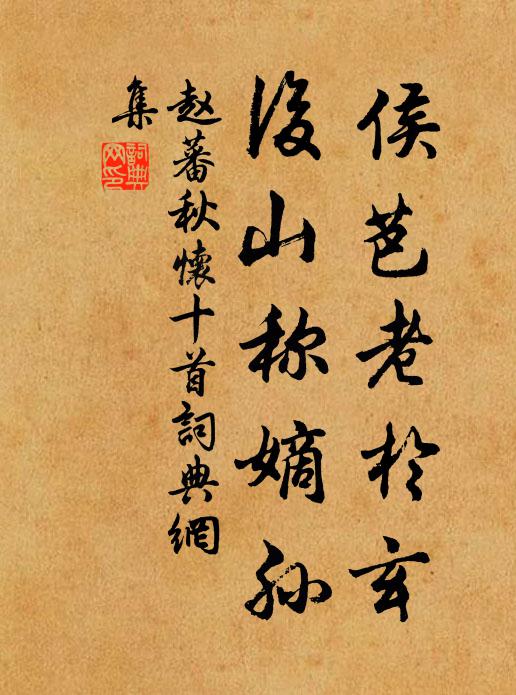 侯芭老於玄
後山称嫡孙
赵蕃秋懷十首詞典網
集
詞典網印